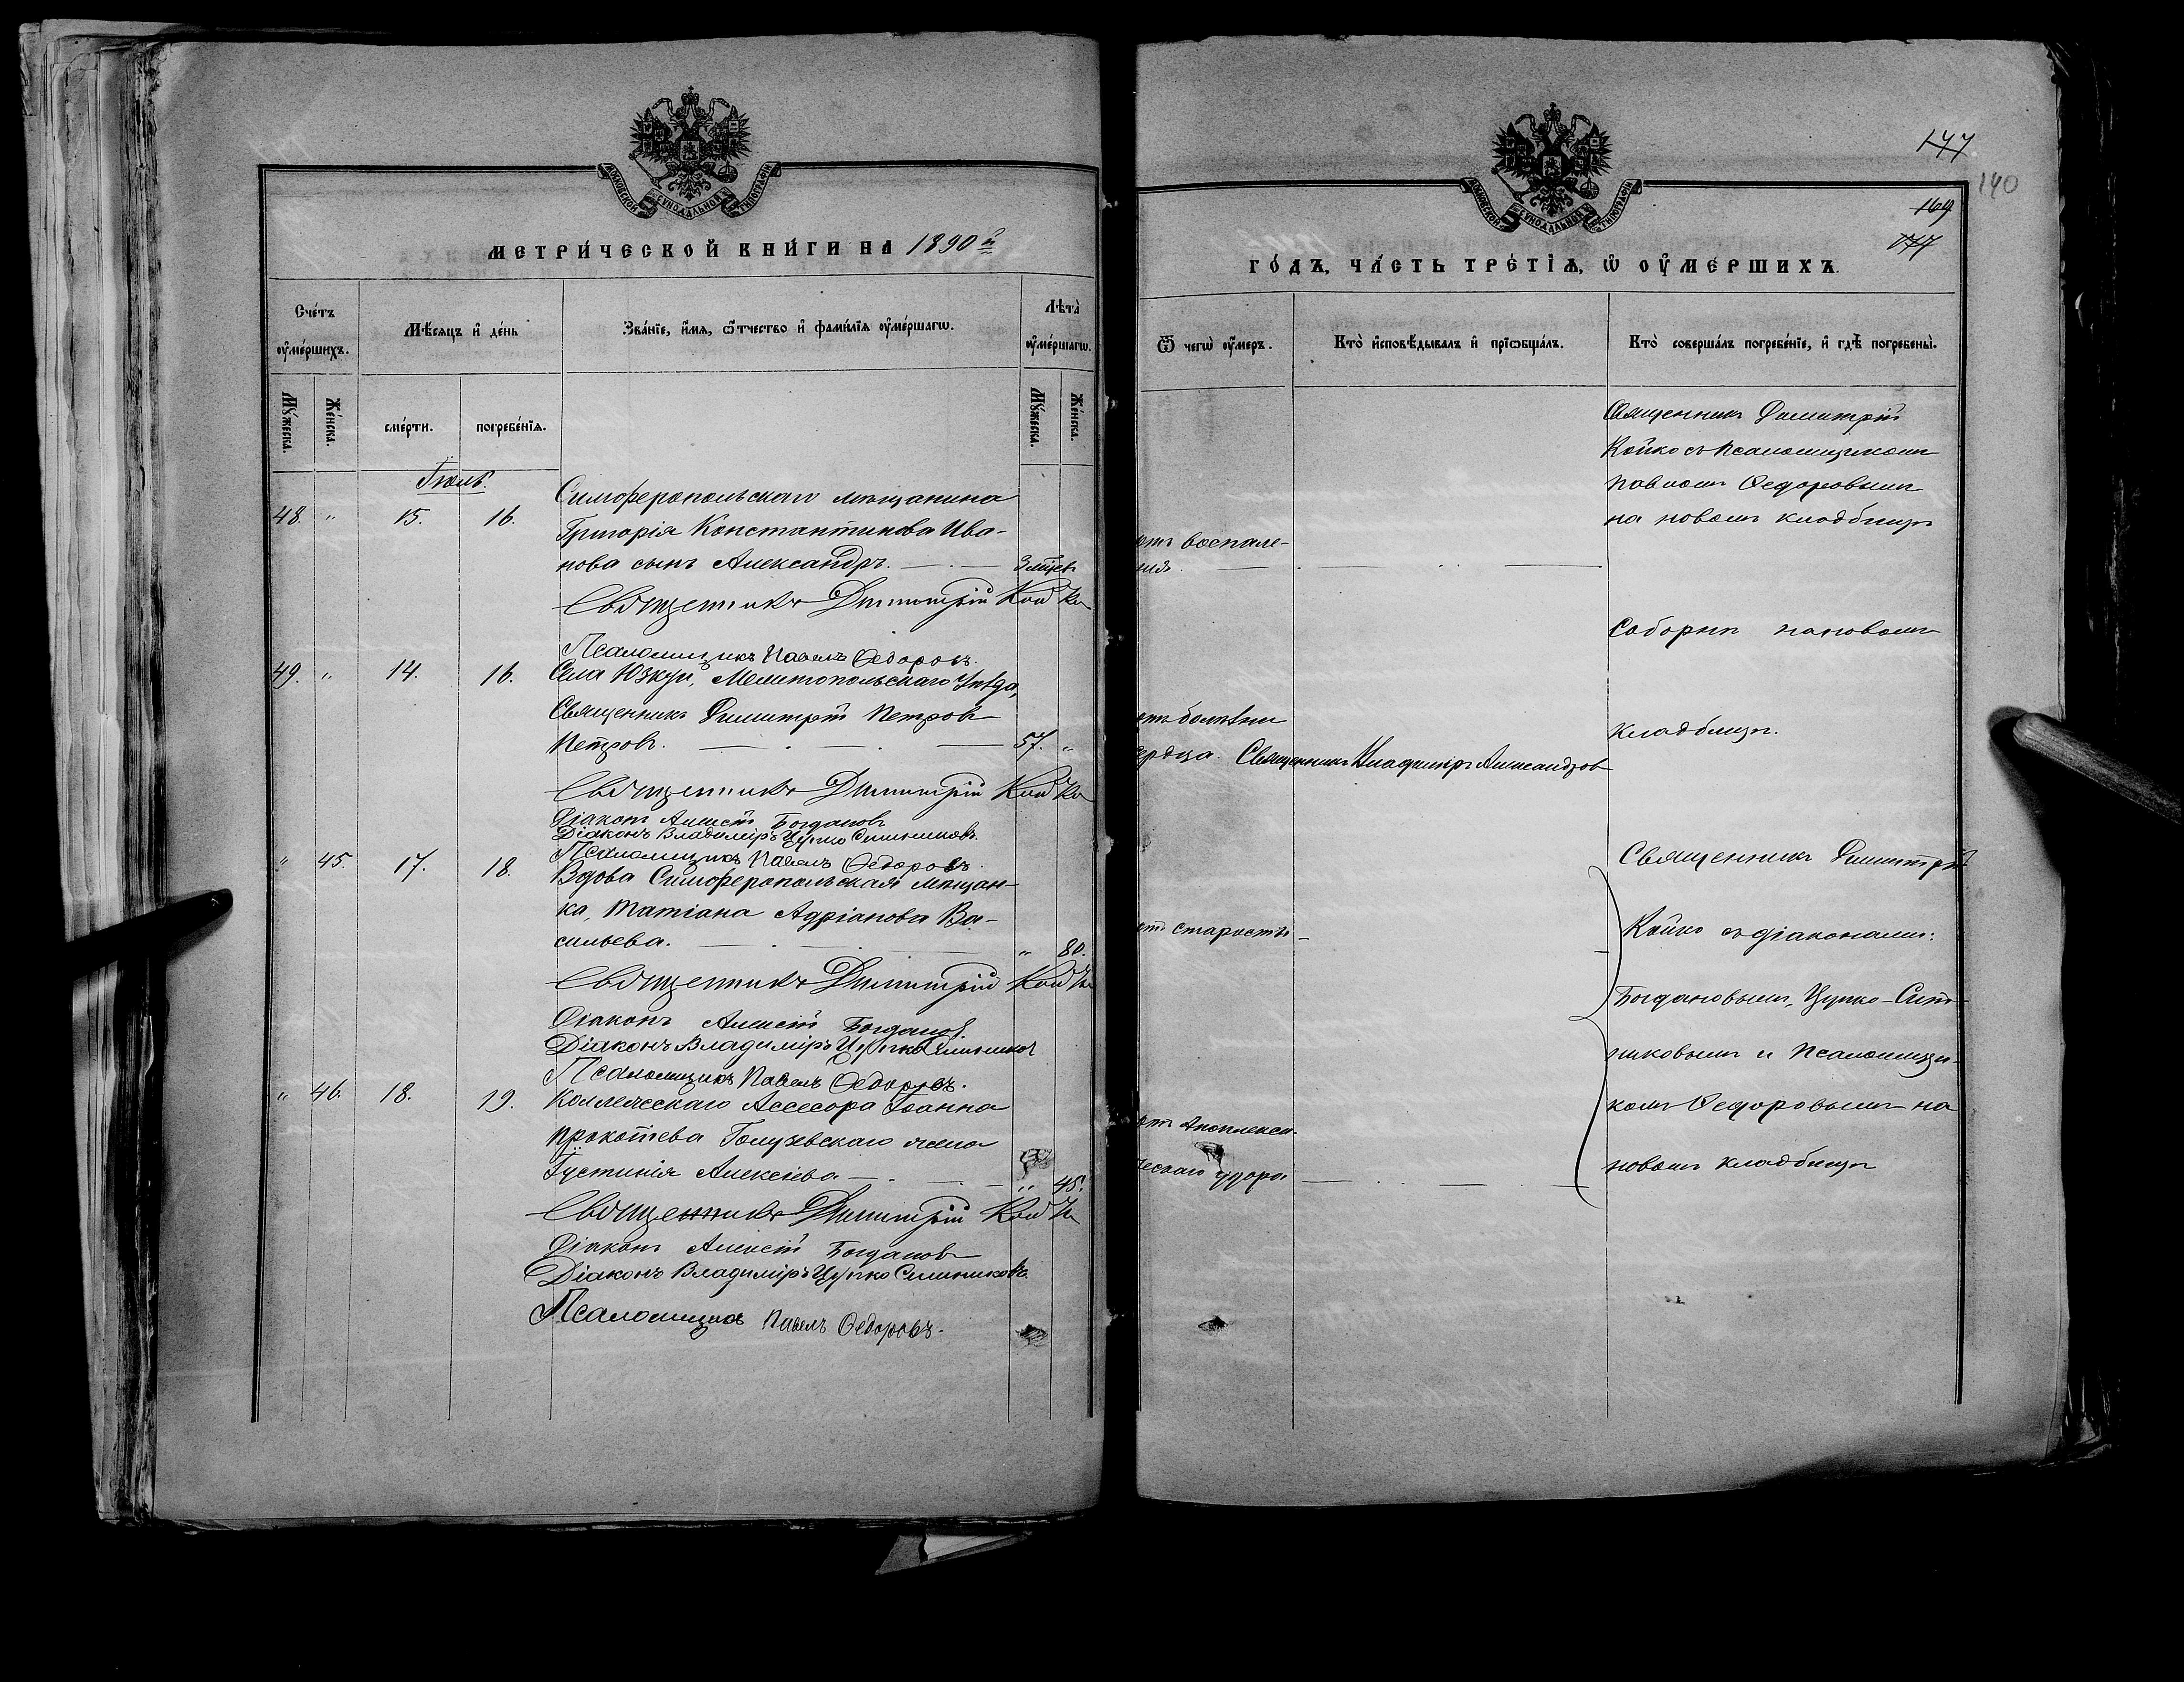 МОСКОВСКОЙ СѴНОДАЛЬНОЙ ТИПОГРАФІИ
МЕТРИ́ЧЕСКОЙ КНИ́ГИ НА 1890 й
Сче́тъ ᲂу҆ме́ршихъ.
Мѣ́сяцъ и҆ де́нь
Зва́нїе, и҆́мя, ѻ҆́тчество и҆ фами́лїя ᲂу҆ме́ршагѡ.
Лѣта̀ ᲂу҆ме́ршагѡ.
Мꙋ́жеска.
Же́нска.
сме́рти.
погребе́нїѧ.
Мꙋ́жеска.
Же́нска.
Іюль.
48. " 15. 16. Симферопольскаго мѣщанина
Григорія Константинова Ива-
нова сынъ Александръ. — 3 мѣсев
Священникъ Димитрій Койко
Псаломщикъ Павелъ Ѳедоровъ.
49. " 14. 16. Села Юзкуй, Мелитопольскаго Уѣзда,
Священникъ Димитрій Петровъ
Петровъ. — 57. "
Священникъ Димитрій Койко
Діаконъ Алексѣй Богдановъ
Діаконъ Владиміръ Цупко Ситниковъ.
Псаломщикъ Павелъ Ѳедоровъ.
" 45. 17. 18. Вдова Симферопольская мѣщан-
ка, Татіана Адріанова Ва-
сильева. — " 80.
Священникъ Димитрій Койко
Діаконъ Алексѣй Богдановъ
Діаконъ Владиміръ Цупко Ситниковъ
Псаломщикъ Павелъ Ѳедоровъ.
" 46. 18. 19. Коллежскаго Ассесора Іоанна
Прокопіева Голуховскаго жена
Іустинія Алексіева — " 45.
Священникъ Димитрій Койко
Діаконъ Алексѣй Богдановъ
Діаконъ Владиміръ Цупко Ситниковъ.
Псаломщикъ Павелъ Ѳедоровъ.
177
140
169
177
МОСКОВСКОЙ СѴНОДАЛЬНОЙ ТИПОГРАФІИ
ГО́ДЪ, ЧА́СТЬ ТРЕ́ТЇѦ, Ѡ҆ ОУ҆МЕ́РШИХЪ.
Ѿ чегѡ̀ ᲂу҆́меръ.
Кто̀ и҆сповѣ́дывалъ и҆ прїѡбща́лъ.
Кто̀ соверша́лъ погребе́нїе, и҆ гдѣ̀ погребены̀.
отъ воспале-
нія.
Священникъ Димитрій
Койко съ Псаломщикомъ
Павломъ Ѳедоровымъ
на новомъ кладбищѣ
отъ болѣзни
сердца. Священникъ Владиміръ Александров
Соборнѣ на новомъ
кладбищѣ.
отъ старости
отъ Апоплекси-
ческаго удара
Священникъ Димитрій
Койко съ діаконами:
Богдановымъ, Цупко-Сит-
никовымъ и Псаломщи-
комъ Ѳедоровымъ на
новомъ кладбищѣ